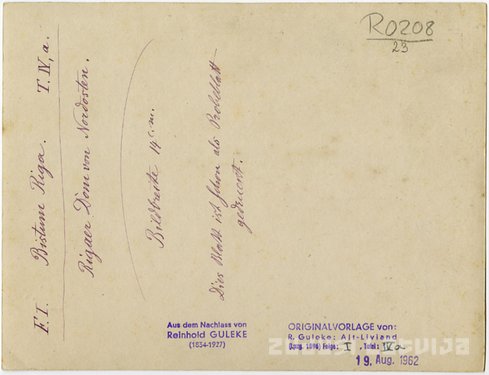 R0208
23
F.I. Bistum Riga. T. IV, a.
Rigaer Dom von Nordosten.
Bildbreite 14 c.m.
Dies Blatt ist schon als Probeblatt
gedruckt.
Aus dem Nachlass von
Reinhold GULEKE
(1834-1927)
ORIGINALVORLAGE von:
R. Guleke: Alt-Livland
Folge: I , Tafel: IV a
19. Aug. 1962